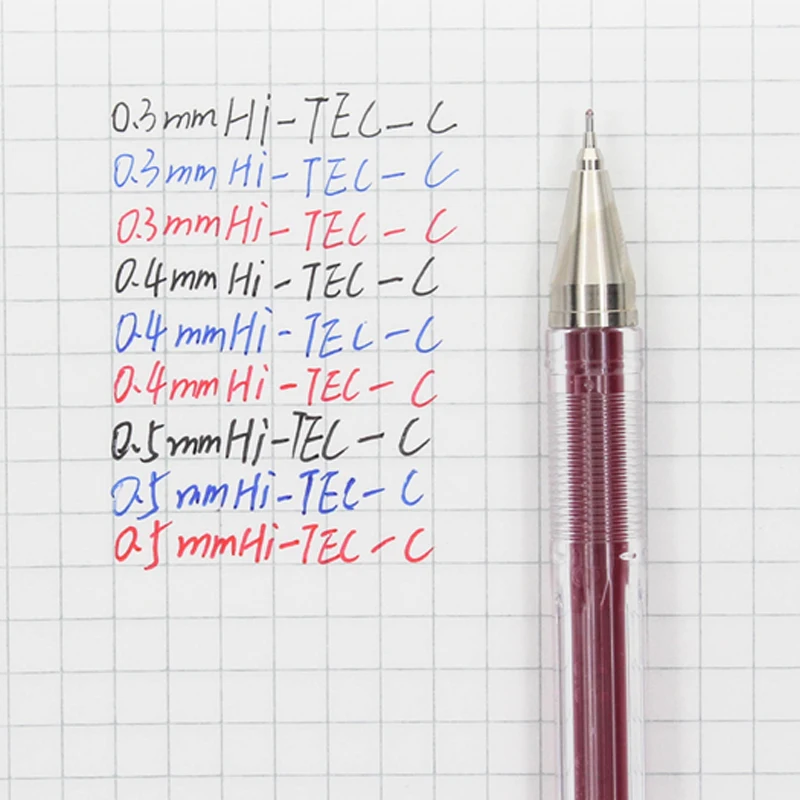 0.3mm Hi-TEC-C
0.3mm Hi-TEC-C
0.3mm Hi-TEC-C
0.4mm Hi-TEC-C
0.4mm Hi-TEC-C
0.4mm Hi-TEC-C
0.5mm Hi-TEC-C
0.5mm Hi-TEC-C
0.5mm Hi-TEC-C